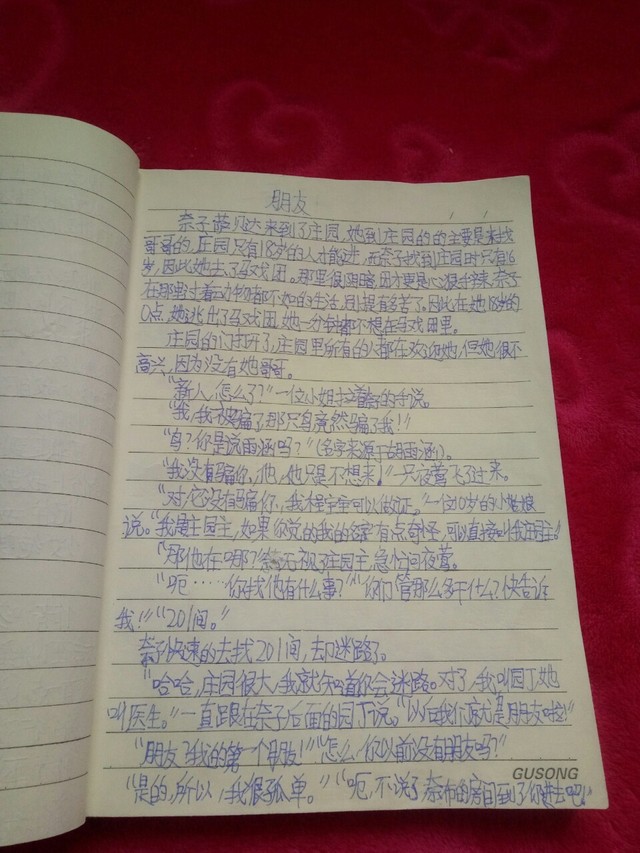 朋友
奈子·萨贝达来到了庄园,她到庄园的的主要是来找
哥哥的,庄园只有18岁的人才能进,而奈子找到庄园时只有16
岁,因此她去了马戏团。那里很阴暗,团长更是心狠手辣,奈子
在那里过着动物都不如的生活,别提有多苦了。因此在她18岁的
0点,她逃出了马戏团,她一分钟都不想在马戏团里。
庄园的门打开了,庄园里所有的人都在欢迎她,但她很不
高兴,因为没有她哥哥。
“新人,怎么了?”一位小姐拉着奈子的手说。
“我,我被骗了,那只鸟竟然骗了我!!”
“鸟?你是说雨涵吗?”(名字来源于胡雨涵)。
“我没有骗你,他,他只是不想来。”一只夜莺飞了过来。
“对,它没有骗你,我可以做证。”一位10岁的小姑娘
说。“我是庄园主,如果你觉的我的名字有点奇怪,可以直接叫我庄园主。”
“那他在哪?”奈子无视了庄园主,急忙问夜莺。
“呃……你找他有什么事?”“你们管那么多干什么?快告诉
我!!”“201间。”
奈子快速的去找201间,却迷路了。
“哈哈,庄园很大,我就知道你会迷路。对了,我叫园丁,她
叫医生。”一直跟在奈子后面的园丁说。“以后我们就是朋友啦!”
“朋友?我的第一个朋友!”“怎么,你以前没有朋友吗?”
“是的,所以,我很孤单。”“呃,不说了,奈布的房间到了,你进去吧!”
GUSONG